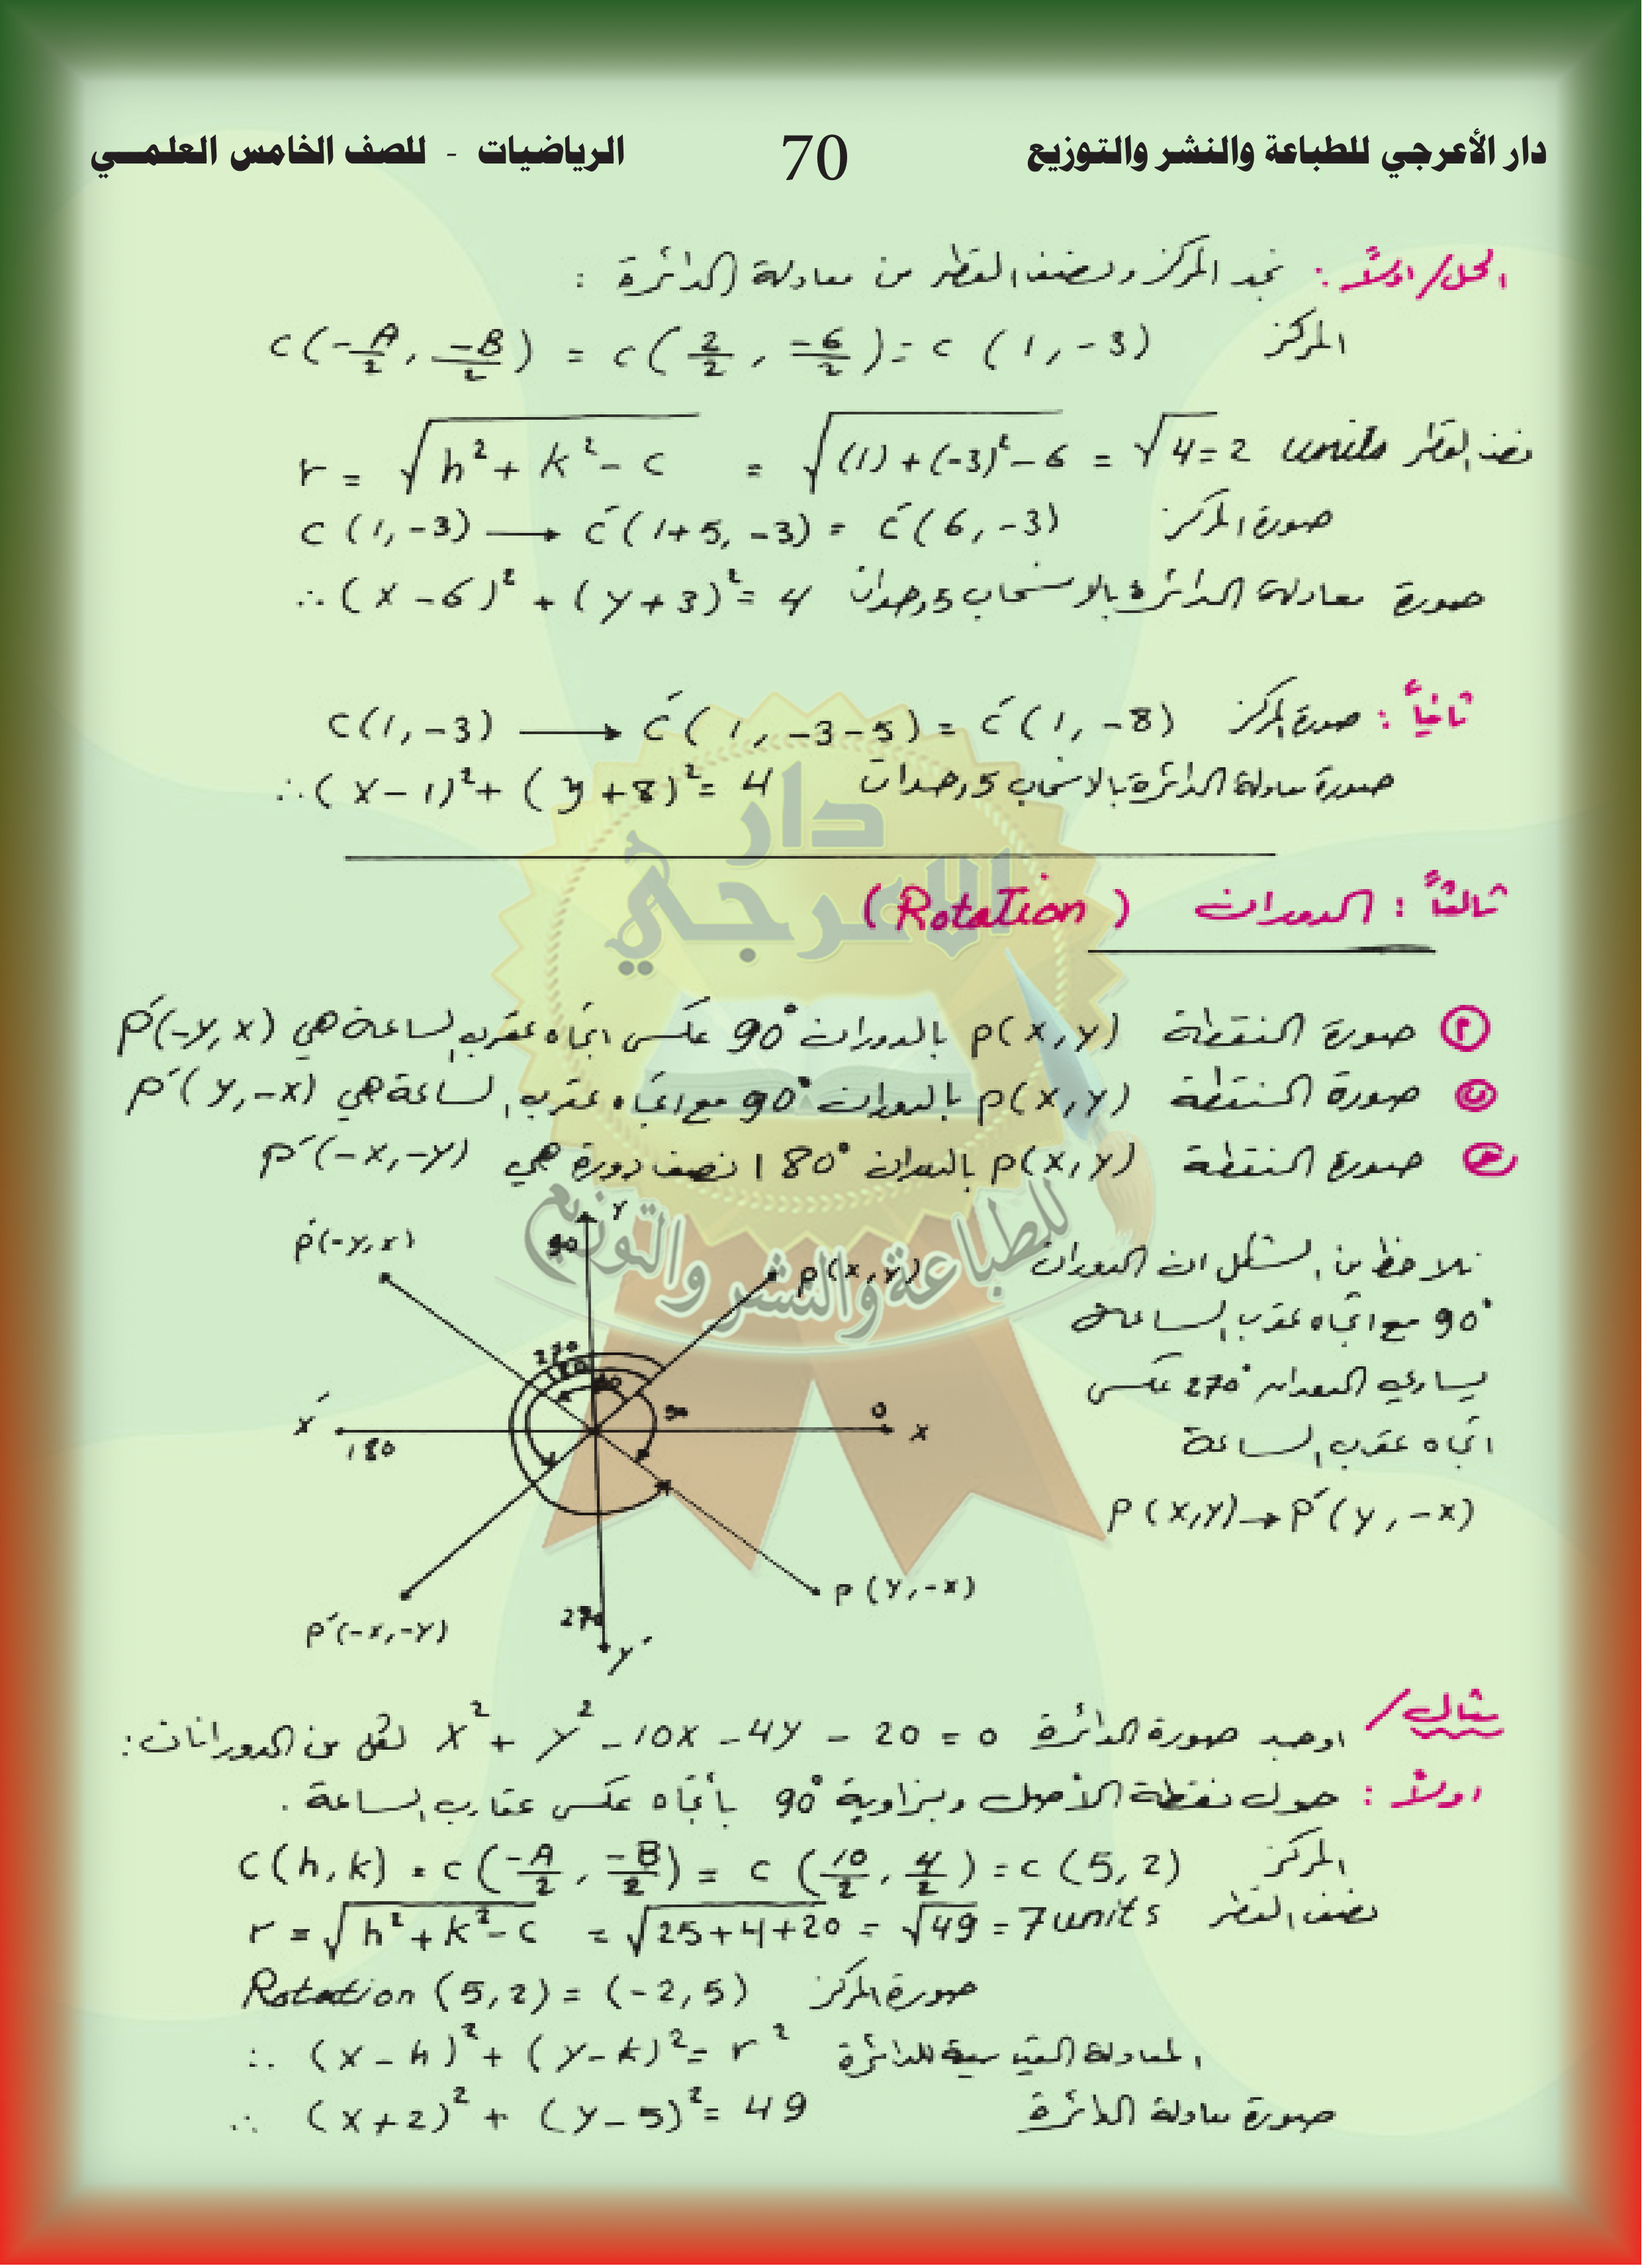 دار الأعرجي للطباعة والنشر والتوزيع 70 الرياضيات - للصف الخامس العلمـــي
الحل/ اولاً : نجد المركز ونصف القطر من معادلة الدائرة :
المركز C(-A/2, -B/2) = C(2/2, -6/2) = C (1, -3)
نصف القطر r = √(h² + k² - c) = √((1) + (-3)² - 6) = √4 = 2 units
صورة المركز C (1, -3) → C´(1+5, -3) = C´(6, -3)
صورة معادلة الدائرة بالانسحاب 5 وحدات ∴ (x - 6)² + (y + 3)² = 4
ثانياً : صورة المركز C(1, -3) → C´(1, -3-5) = C´(1, -8)
صورة معادلة الدائرة بالانسحاب 5 وحدات ∴ (x - 1)² + (y + 8)² = 4
ثالثاً : الدوران (Rotation)
دار
الاعرجي
للطباعة والنشر والتوزيع
أ صورة النقطة p(x,y) بالدوران 90° عكس اتجاه عقرب الساعة هي p´(-y, x)
ب صورة النقطة p(x,y) بالدوران 90° مع اتجاه عقرب الساعة هي p´(y, -x)
ج صورة النقطة p(x,y) بالدوران 180° نصف دورة هي p´(-x, -y)
نلاحظ من الشكل ان الدوران
90° مع اتجاه عقرب الساعة
يساوي الدوران 270° عكس
اتجاه عقرب الساعة
p (x,y) → p´(y, -x)
y
90
p´(-y,x)
p(x,y)
270
180
90
90
x´
180
0
x
p´(-x,-y)
270
y´
p (y,-x)
مثال/ اوجد صورة الدائرة x² + y² - 10x - 4y - 20 = 0 لكل من الدورانات :
اولاً : حول نقطة الأصل وبزاوية 90° بأتجاه عكس عقارب الساعة .
المركز C(h,k) = C(-A/2, -B/2) = C (10/2, 4/2) = C (5, 2)
نصف القطر r = √(h² + k² - c) = √(25+4+20) = √49 = 7 units
صورة المركز Rotation (5, 2) = (-2, 5)
المعادلة القياسية للدائرة ∴ (x - h)² + (y - k)² = r²
صورة معادلة الدائرة ∴ (x + 2)² + (y - 5)² = 49